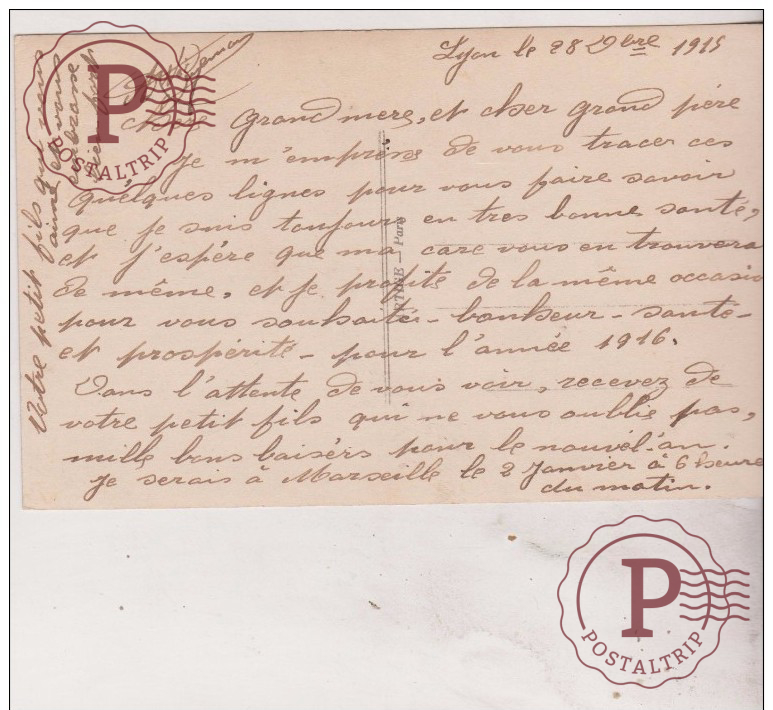 Lyon le 28 Xbre 1915
Chère Grand mere, et cher grand père
Je m'emprens de vous tracer ces
quelques lignes pour vous faire savoir
que je suis toujours en tres bonne santé,
et j'espére que ma care vous en trouvera
de même, et je profite de la même occasio
pour vous souhaité - bonheur - sante -
et prospérité - pour l'année 1916.
Dans l'attente de vous voir, recevez de
votre petit fils qui ne vous oublie pas,
mille bons baisérs pour le nouvél. an.
Je serais à Marseille le 2 Janvier à 6 heure
du matin.
Votre petit fils qui vous
aime et vous
embrasse
Paris
P
POSTALTRIP
P
POSTALTRIP